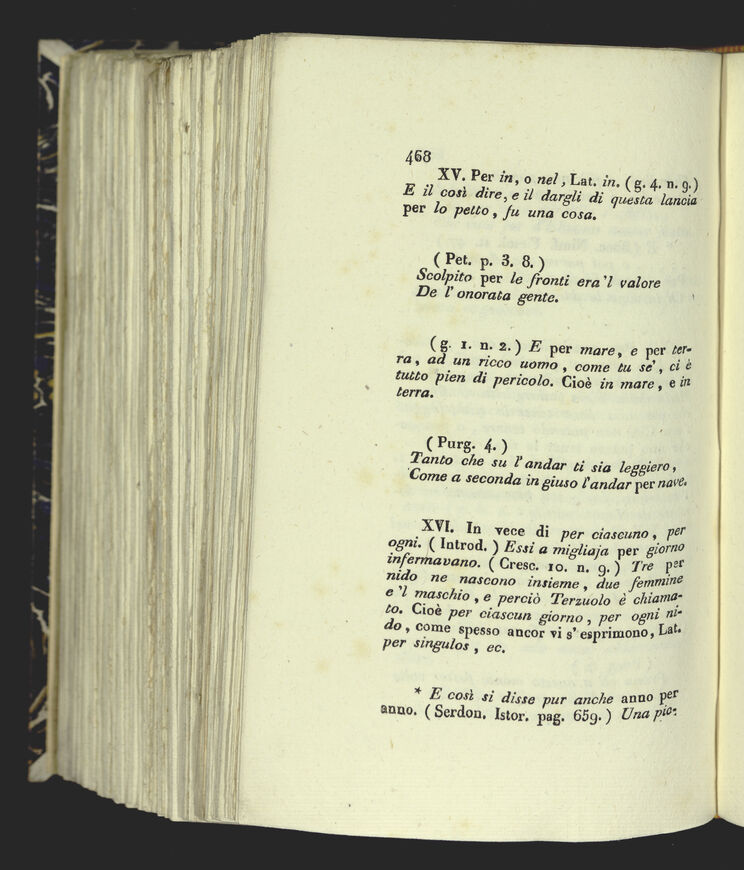 468
XV. Per in, o nel, Lat. in. (g. 4. n. 9.)
E il così dire, e il dargli di questa lancia
per lo petto, fu una cosa.
(Pet. p. 3. 8.)
Scolpito per le fronti era 'l valore
De l' onorata gente.
(g. 1. n. 2.) E per mare, e per ter-
ra, ad un ricco uomo, come tu se', ci è
tutto pien di pericolo. Cioè in mare, e in
terra.
(Purg. 4.)
Tanto che su l' andar ti sia leggiero,
Come a seconda in giuso l'andar per nave.
XVI. In vece di per ciascuno, per
ogni. (Introd.) Essi a migliaja per giorno
infermavano. (Cresc. 10. n. 9.) Tre per
nido ne nascono insieme, due femmine
e 'l maschio, e perciò Terzuolo è chiama-
to. Cioè per ciascun giorno, per ogni ni-
do, come spesso ancor vi s' esprimono, Lat.
per singulos, ec.
* E così si disse pur anche anno per
anno. (Serdon. Istor. pag. 659.) Una pio-